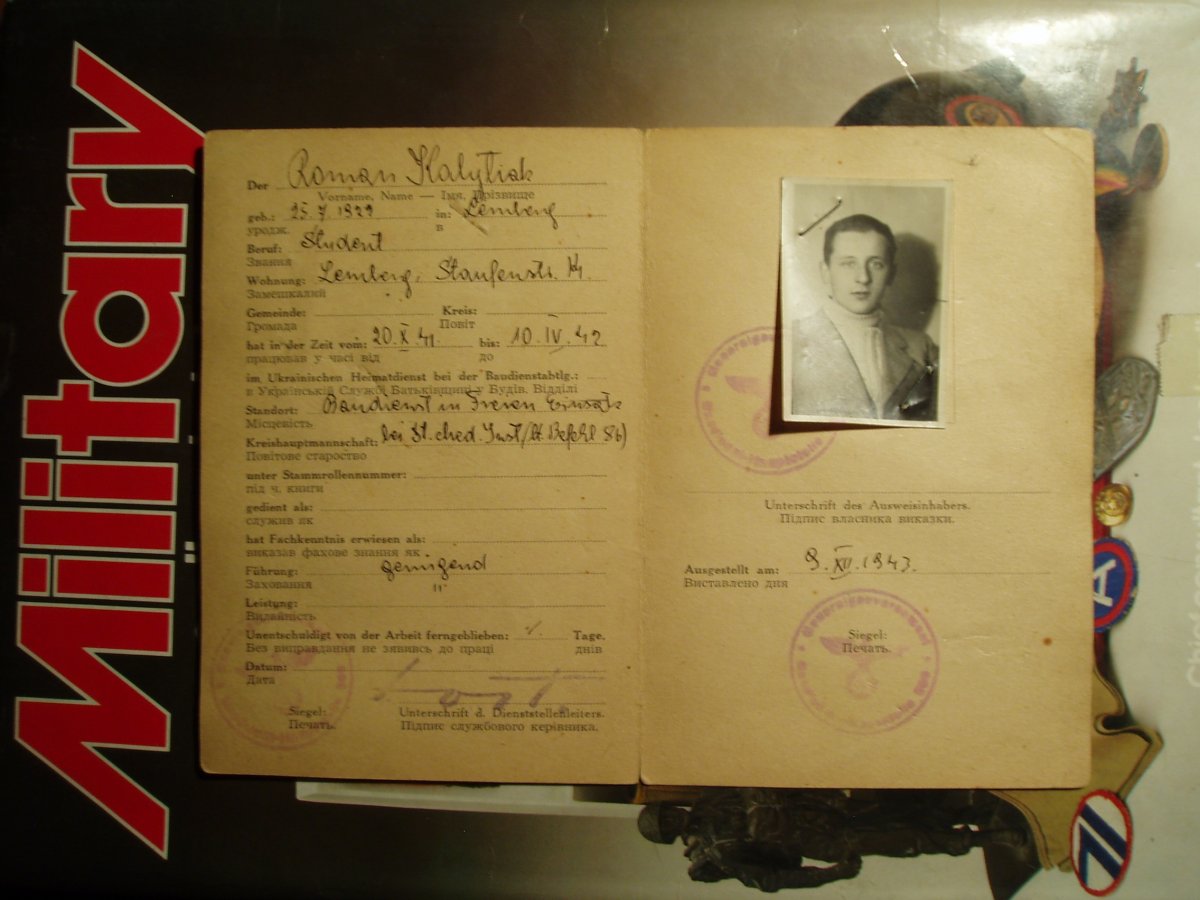 Military
Der Roman Kalytiak
Vorname, Name — Імя, Прізвище
geb.: 25. 7. 1922 in: Lemberg
уродж. в
Beruf: Student
Звання
Wohnung: Lemberg, Staufenstr.
Замешкалий
Gemeinde: Kreis:
Громада Повіт
hat in der Zeit vom: 20. X. 41. bis: 10. IV. 42
працював у часі від до
im Ukrainischen Heimatdienst bei der Baudienstabtlg.:
в Українській Службі Батьківщині у Будів. Відділі
Standort: Baudienst im Freien Einsatz
Місцевість
Kreishauptmannschaft: bei St. Med. Inst. (lt. Befehl 86)
Повітове староство
unter Stammrollennummer:
під ч. книги
gedient als:
служив як
hat Fachkenntnis erwiesen als:
виказав фахове знання як
Führung: genügend
Заховання "
Leistung:
Видайність
Unentschuldigt von der Arbeit ferngeblieben: Tage.
Без виправдання не зявивсь до праці днів
Datum:
Дата
Siegel: Unterschrift d. Dienststellenleiters.
Печать. Підпис службового керівника.
Unterschrift des Ausweisinhabers.
Підпис власника виказки.
Ausgestellt am: 9. XII. 1943.
Виставлено дня
Siegel:
Печать.
A